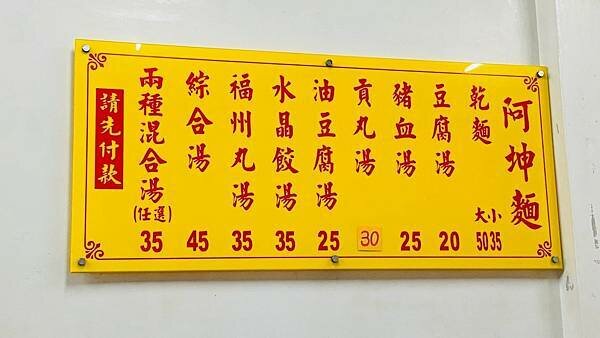 阿坤麵
乾麵
大小
50 35
豆腐湯
20
豬血湯
25
貢丸湯
30
油豆腐湯
25
水晶餃湯
35
福州丸湯
35
綜合湯
45
兩種混合湯
(任選)
35
請先付款